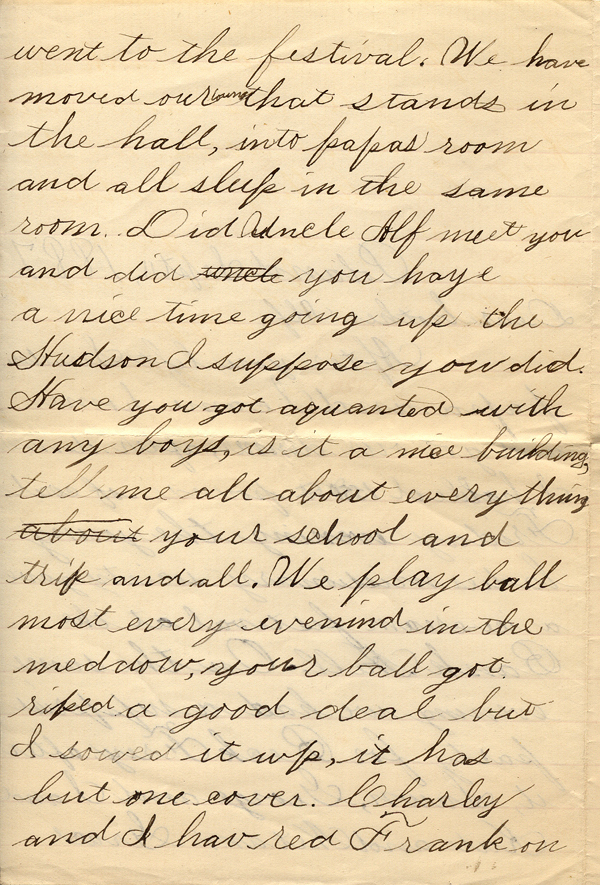 went to the festival. We have
moved our lounge that stands in
the hall, into papas room
and all sleep in the same
room. Did Uncle Alf meet you
and did uncle you have
a nice time going up the
Hudson I suppose you did.
Have you got aquanted with
any boys, is it a nice building,
tell me all about everything
about your school and
trip and all. We play ball
most every evenind in the
meddow, your ball got
riped a good deal but
I sowed it up, it has
but one cover. Charley
and I hav red Frank on